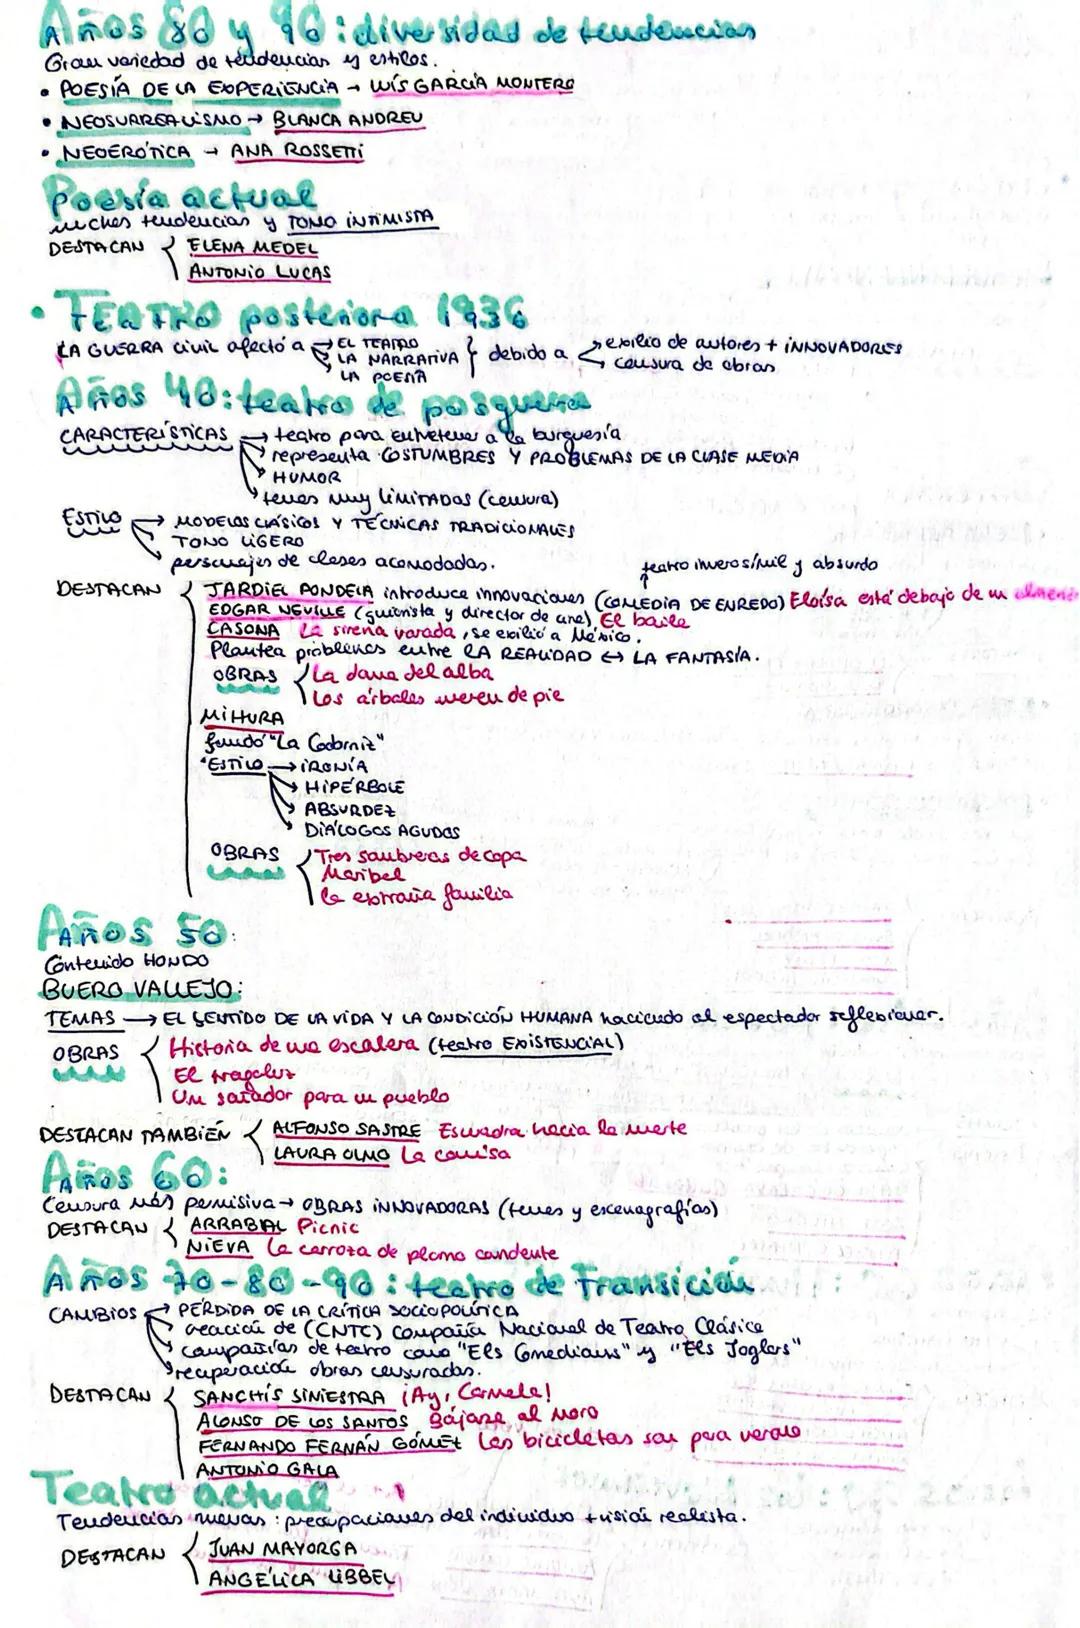 Años 80 y 90: diversidad de tendencias
Gran variedad de tendencias y estilos.
• POESÍA DE LA EXPERIENCIA → LUÍS GARCÍA MONTERO
• NEOSURREALISMO → BLANCA ANDREU
• NEOERÓTICA → ANA ROSSETTI
Poesía actual
muchas tendencias y TONO INTIMISTA
DESTACAN { ELENA MEDEL
ANTONIO LUCAS
• TEATRO posterior a 1936
LA GUERRA civil afectó a → EL TEATRO
→ LA NARRATIVA } debido a → exilio de autores + INNOVADORES
→ LA POESÍA → censura de obras
Años 40: teatro de posguerra
CARACTERÍSTICAS → teatro para entretener a la burguesía
→ representa COSTUMBRES Y PROBLEMAS DE LA CLASE MEDIA
→ HUMOR
→ temas muy LIMITADOS (censura)
ESTILO → MODELOS CLÁSICOS Y TÉCNICAS TRADICIONALES
→ TONO LIGERO
→ personajes de clases acomodadas.
teatro inverosímil y absurdo
DESTACAN { JARDIEL PONDELA introduce innovaciones (COMEDIA DE ENREDO) Eloísa está debajo de un almendro
EDGAR NEVILLE (guionista y director de cine) El baile
CASONA La sirena varada, se exilió a México.
Plantea problemas entre LA REALIDAD ↔ LA FANTASÍA.
OBRAS { La dama del alba
Los árboles mueren de pie
MIHURA
fundó "La Codorniz"
ESTILO → IRONÍA
→ HIPÉRBOLE
→ ABSURDEZ
→ DIÁLOGOS AGUDOS
OBRAS { Tres sombreros de copa
Maribel
la extraña familia
Años 50:
Contenido HONDO
BUERO VALLEJO:
TEMAS → EL SENTIDO DE LA VIDA Y LA CONDICIÓN HUMANA haciendo al espectador reflexionar.
OBRAS { Historia de una escalera (teatro EXISTENCIAL)
El tragaluz
Un soñador para un pueblo
DESTACAN TAMBIÉN { ALFONSO SASTRE Escuadra hacia la muerte
LAURA OLMO La camisa
Años 60:
Censura más permisiva → OBRAS INNOVADORAS (temas y escenografías)
DESTACAN { ARRABAL Picnic
NIEVA La carroza de plomo candente
Años 70-80-90: teatro de Transición
CAMBIOS → PÉRDIDA DE LA CRÍTICA SOCIOPOLÍTICA
→ creación de (CNTC) Compañía Nacional de Teatro Clásico
→ compañías de teatro como "Els Comedians" y "Els Joglars"
→ recuperación obras censuradas.
DESTACAN { SANCHÍS SINIESTRA ¡Ay, Carmela!
ALONSO DE LOS SANTOS Bájase al moro
FERNANDO FERNÁN GÓMEZ Las bicicletas son para verano
ANTONIO GALA
Teatro actual
Tendencias nuevas: preocupaciones del individuo + visión realista.
DESTACAN { JUAN MAYORGA
ANGÉLICA LIBBEL